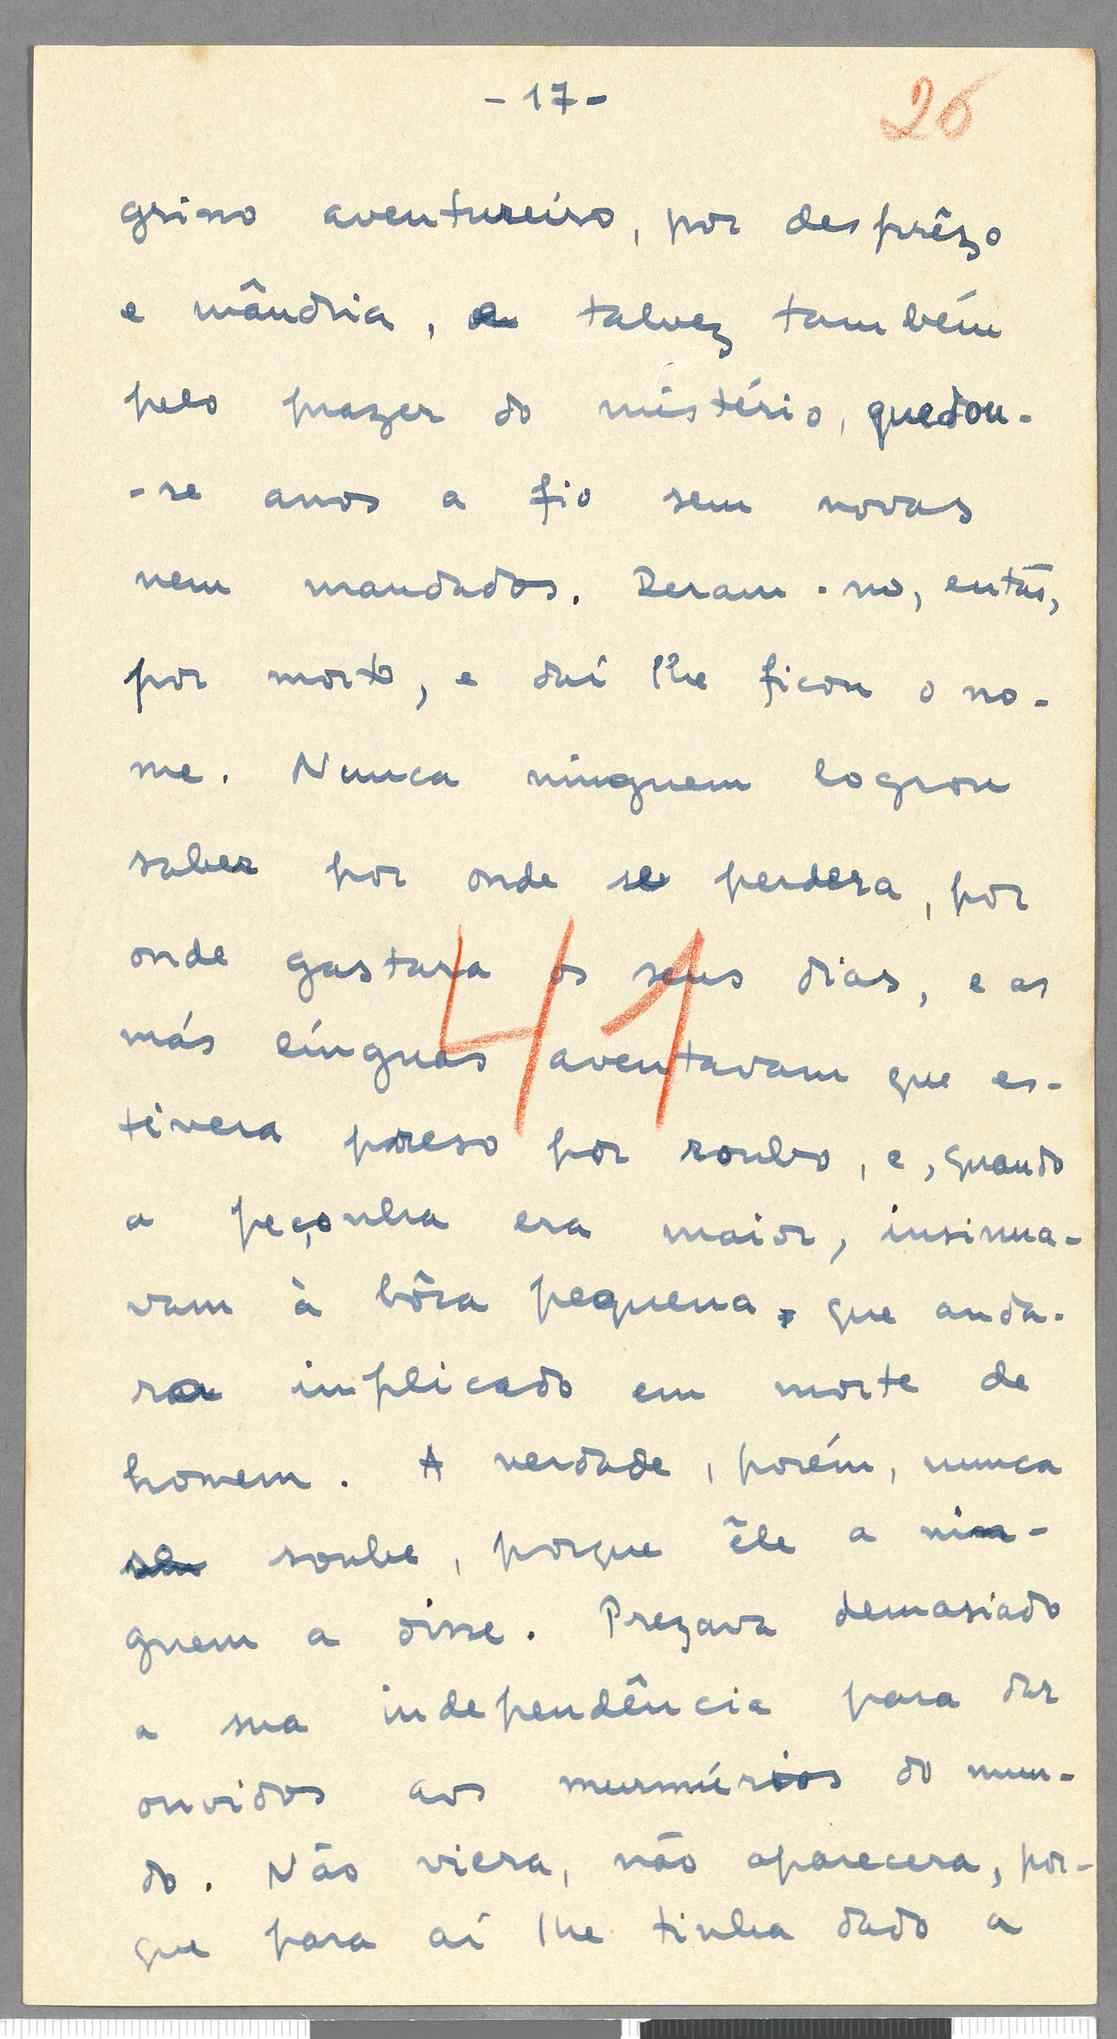 - 17 -
26
grino aventureiro, por desprêzo
e mândria, talvez também
pelo prazer do mistério, quedou-
-se anos a fio sem novas
nem mandados. Deram-no, então,
por morto, e daí lhe ficou o no-
me. Nunca ninguem logrou
saber por onde se perdera, por
onde gastara os seus dias, e as
41
más línguas aventavam que es-
tivera preso por roubo, e, quando
a peçonha era maior, insinua-
vam à bôca pequena, que anda-
ra implicado em morte de
homem. A verdade, porém, nunca
soube, porque êle a nin-
guem a disse. Prezava demasiado
a sua independência para dar
ouvidos aos murmúrios do mun-
do. Não viera, não aparecera, por-
que para aí lhe tinha dado a